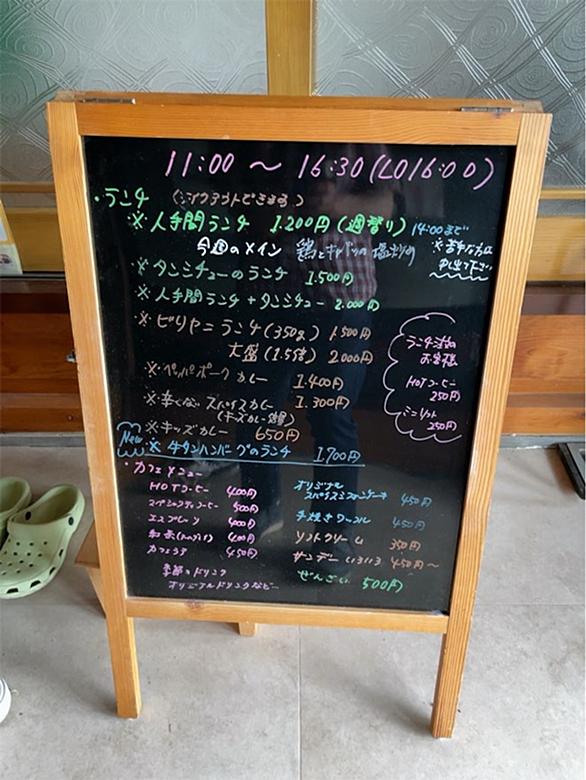 11:00 〜 16:30(LO16:00)
・ランチ (テイクアウトできます)
※人手間ランチ 1.200円(週替り) 14:00まで
今週のメイン 鶏とキャベツの塩炒め
※苦手な方は
申出て下さい
※タンシチューのランチ 1.500円
※人手間ランチ+タンシチュー 2.000円
※ビリヤニランチ(350g) 1.500円
大盛(1.5倍) 2.000円
※ペッパーポークカレー 1.400円
※辛くないスパイスカレー 1.300円
※キッズカレー 650円
New ※牛タンハンバーグのランチ 1.700円
ランチ注文の
お客様
HOTコーヒー
250円
ミニソフト
250円
・カフェメニュー
HOTコーヒー 400円
スペシャルティコーヒー 500円
エスプレッソ 400円
カフェラテ 450円
季節のドリンク
オリジナルドリンクなど
オリジナル
スパイスシフォンケーキ 450円
手焼きワッフル 450円
ソフトクリーム 350円
サンデーいろいろ 450円〜
ぜんざい 500円